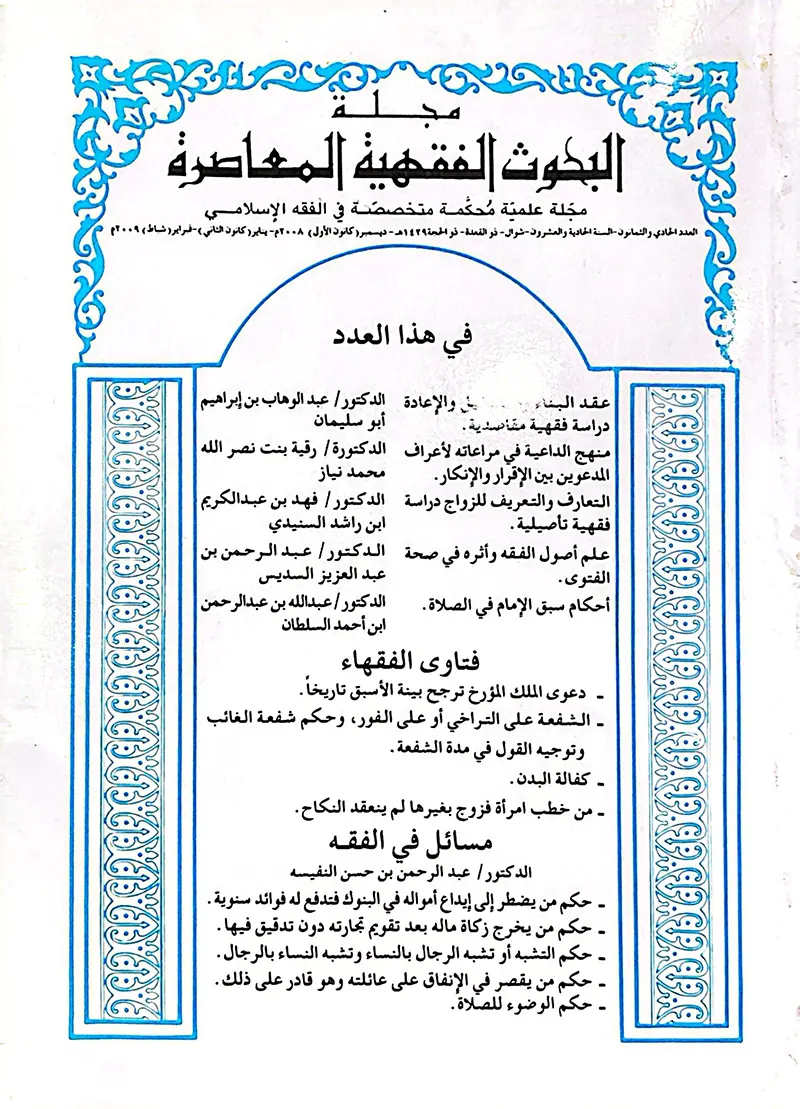 مجلة
البحوث الفقهية المعاصرة
مجلة علمية مُحكَّمة متخصصة في الفقه الإسلامي
العدد الحادي والثمانون-السنة الحادية والعشرون-شوال- ذو القعدة- ذو الحجة ١٤٢٩هـ - ديسمبر (كانون الأول) ٢٠٠٨م- يناير (كانون الثاني)-فبراير (شباط) ٢٠٠٩م
في هذا العدد
عقد البناء والإعادة الدكتور/ عبد الوهاب بن إبراهيم
دراسة فقهية مقاصدية. أبو سليمان
منهج الداعية في مراعاته لأعراف الدكتورة/ رقية بنت نصر الله
المدعوين بين الإقرار والإنكار. محمد نياز
التعارف والتعريف للزواج دراسة الدكتور/ فهد بن عبدالكريم
فقهية تأصيلية. ابن راشد السنيدي
علم أصول الفقه وأثره في صحة الدكتور/ عبد الرحمن بن
الفتوى. عبد العزيز السديس
أحكام سبق الإمام في الصلاة. الدكتور/ عبدالله بن عبدالرحمن
ابن أحمد السلطان
فتاوى الفقهاء
ـ دعوى الملك المؤرخ ترجح بينة الأسبق تاريخاً.
ـ الشفعة على التراخي أو على الفور، وحكم شفعة الغائب
وتوجيه القول في مدة الشفعة.
ـ كفالة البدن.
ـ من خطب امرأة فزوج بغيرها لم ينعقد النكاح.
مسائل في الفقه
الدكتور/ عبد الرحمن بن حسن النفيسه
ـ حكم من يضطر إلى إيداع أمواله في البنوك فتدفع له فوائد سنوية.
ـ حكم من يخرج زكاة ماله بعد تقويم تجارته دون تدقيق فيها.
ـ حكم التشبه أو تشبه الرجال بالنساء وتشبه النساء بالرجال.
ـ حكم من يقصر في الإنفاق على عائلته وهو قادر على ذلك.
ـ حكم الوضوء للصلاة.